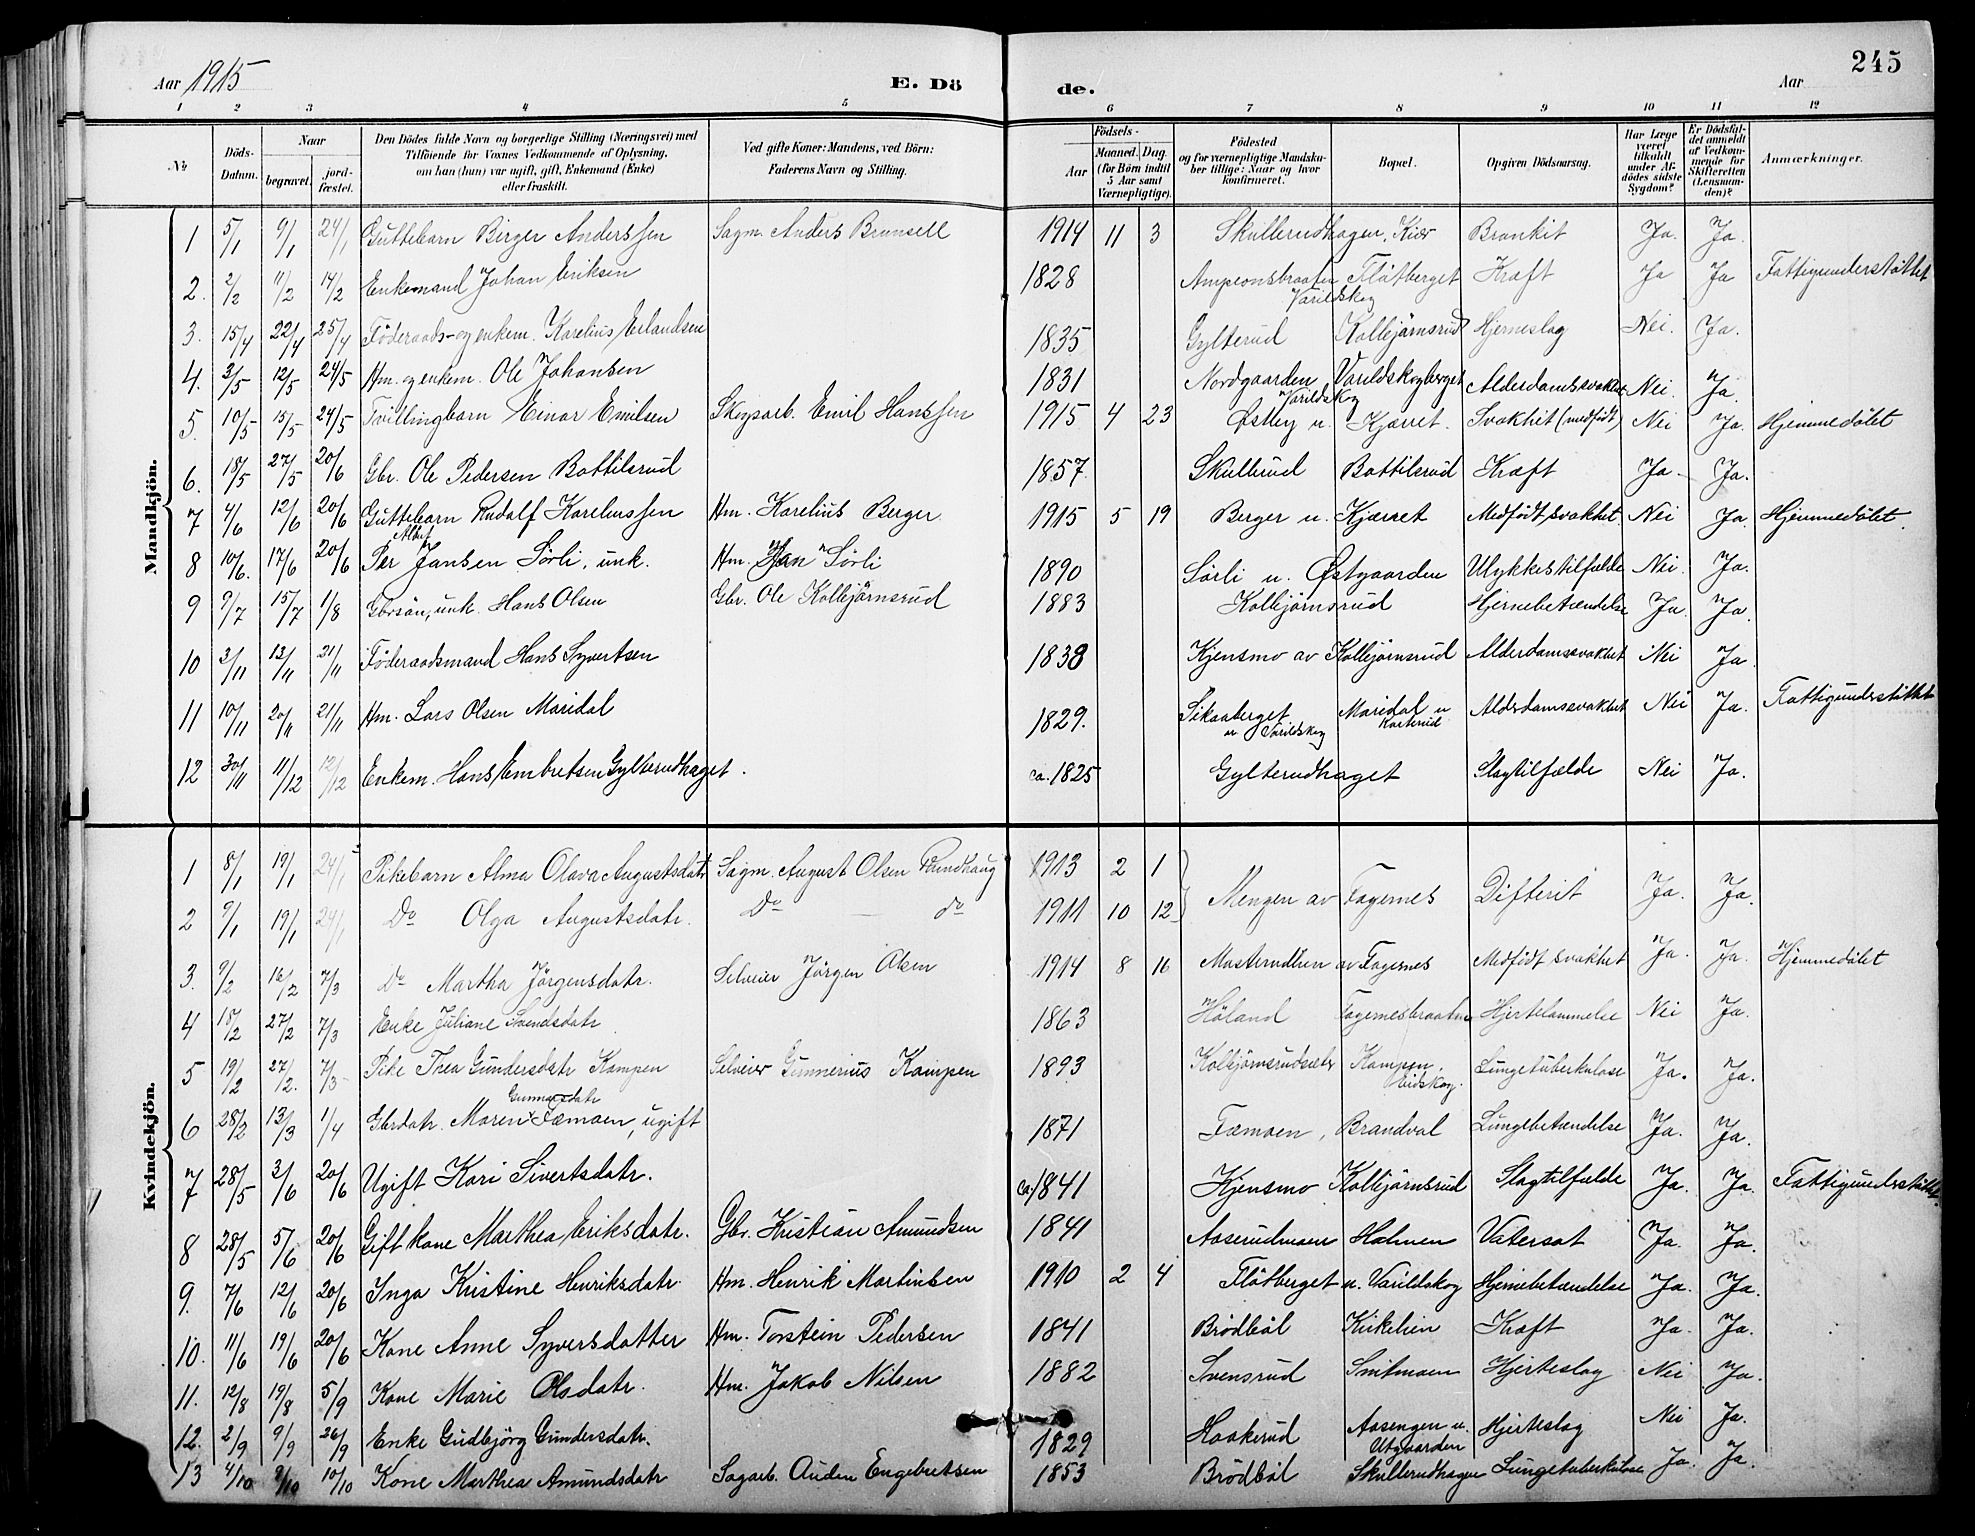 Aar 1915
E. Dö
de.
Aar
245
1 2 3 4 5 6 7 8 9 10 11 12
No.
Döds-Datum.
Naar
begravet.
jord-fæstet.
Den Dödes fulde Navn og borgerlige Stilling (Næringsvei) med
Tilföiende for Voxnes Vedkommende af Oplysning,
om han (hun) var ugift, gift, Enkemand (Enke)
eller fraskilt.
Ved gifte Koner: Mandens, ved Börn:
Faderens Navn og Stilling.
Födsels-
Aar
Maaned. Dag.
(for Börn indtil
5 Aar samt
Værnepligtige).
Födested
og for værnepligtige Mandskaber tillige: Naar og hvor
konfirmeret.
Bopæl.
Opgiven Dödsaarsag.
Har Læge været tilkaldt under Afdödes sidste Sygdom?
Er Dödsfaldet anmeldt af Vedkommende for Skifteretten (Lensmanden)?
Anmærkninger.
Mandkjön.
1 5/1 9/1 24/1 Guttebarn Birger Anderssen Sagm. Anders Brunsell 1914 11 3 Skullerudhagen, Kier Bronkit Ja. Ja.
2. 2/2 11/2 14/2 Enkemand Johan Eriksen 1828 Ampeonsbraaten Varildskog Flötberget Kræft Ja Ja Fattigunderstöttet
3. 15/4 22/4 25/4 Föderaads- og enkem. Karelius Erlandsen 1835 Gylterud Kolbjörnsrud Hjerneslag Nei. Ja.
4. 3/5 12/5 24/5 Hm. og enkem. Ole Johansen 1831 Nordgaarden Varildskog Varildskogberget Alderdomssvakhet Nei. Ja.
5. 10/5 15/5 24/5 Tvillingbarn Einar Emilsen Skogsarb. Emil Hanssen 1915 4 23 Østby u. Kjærret. Svakhet (medfödt) Nei Ja. Hjemmedöbt
6. 18/5 27/5 20/6 Gbr. Ole Pedersen Bottilsrud 1857. Skullerud Bottilsrud Kræft Ja. Ja.
7 4/6 12/6 20/6 Guttebarn Rudolf Kareliussen Hm. Karelius Berger 1915 5 19 Berger u. Kjærret Medfödt svakhet Nei Ja. Hjemmedöbt.
8 10/6. 17/6 20/6 Per Albert Jansen Sörli, unk. Hm. Jan Sörli 1890 Sörli u. Østgaarden Ulykkestilfælde Nei. Ja.
9 9/7 15/7 1/8 Gbrsön, unk. Hans Olsen Gbr. Ole Kolbjörnsrud 1883 Kolbjörnsrud Hjernebetændelse Ja Ja.
10 3/11 13/11 21/11 Föderaadsmand Hans Syvertsen 1838 Kjensmo av Kolbjörnsrud Alderdomssvakhet Nei Ja
11 10/11 20/11 21/11 Hm. Lars Olsen Maridal 1829. Sikaaberget u Varildskog Maridal u Alderdomssvakhet Nei Ja. Fattigunderstöttet
12 30/11 11/12 12/12 Enkem. Hans Embretsen Gylterudhaget. ca. 1825 Gylterudhaget Slagtilfælde Nei Ja.
Kvindekjön.
1 8/1 19/1 24/1 Pikebarn Alma Olava Augustsdatr Sagm. August Olsen Rundhaug 1913 2 1 Mengen av Fagernes Difterit Ja. Ja.
2 9/1 19/1 24/1 Do Olga Augustsdatr. Do do 1911 10 12
3. 9/2 16/2 7/3 Do Martha Jörgensdatr. Selveier Jörgen Olsen 1914 8 16 Masterudlien av Fagernes Medfödt svakhet Ja. Ja. Hjemmedöbt
4 18/2 27/2 7/3 Enke Juliane Svendsdatr 1863 Höland Fagernesbraaten Hjertelammelse Nei Ja.
5 19/2 27/2. 7/3 Pike Thea Gundersdatr Kampen Selveier Gunnerius Kampen 1893 Kolbjörnsrudsætr Kampen, Eidskog. Lungetuberkulose Ja. Ja.
6 28/2 13/3 1/4 Gbrdatr. Maren Gunnarsdatr Fæmoen, ugift 1871 Fæmoen, Brandval Lungebetændelse Ja. Ja.
7 28/5 3/6 20/6 Ugift Kari Sivertsdatr. ca. 1841 Kjensmo Kolbjörnsrud Slagtilfælde Ja. Ja. Fattigunderstöttet.
8 28/5 5/6 20/6 Gift kone Marthea Eriksdatr. Gbr. Kristian Amundsen 1841 Aaserudmoen Holmen Vatersot Ja. Ja.
9. 7/6 12/6 20/6 Inga Kristine Henriksdatr Hm. Henrik Martinsen 1910 2 4 Flötberget u. Varildskog Hjernebetændelse Ja. Ja.
10. 11/6 19/6 20/6 Kone Anne Syversdatter Hm. Torstein Pedersen 1841 Brödböl Kirkelien Kræft Ja. Ja.
11. 12/8 19/8 5/9 Kone Marie Olsdatr. Hm. Jakob Nilsen 1882 Svensrud Smitmoen Hjerteslag Nei Ja.
12. 2/9 9/9 26/9 Enke Gudbjörg Gundersdatr. 1829 Haakerud Aasengen u. Utgaarden Hjerteslag Nei Ja.
13 4/10 9/10 10/10 Kone Marthea Amundsdatr Sagarb. Auden Engebretsen 1853 Brödböl Skullerudhagen Lungetuberkulose Ja. Ja.